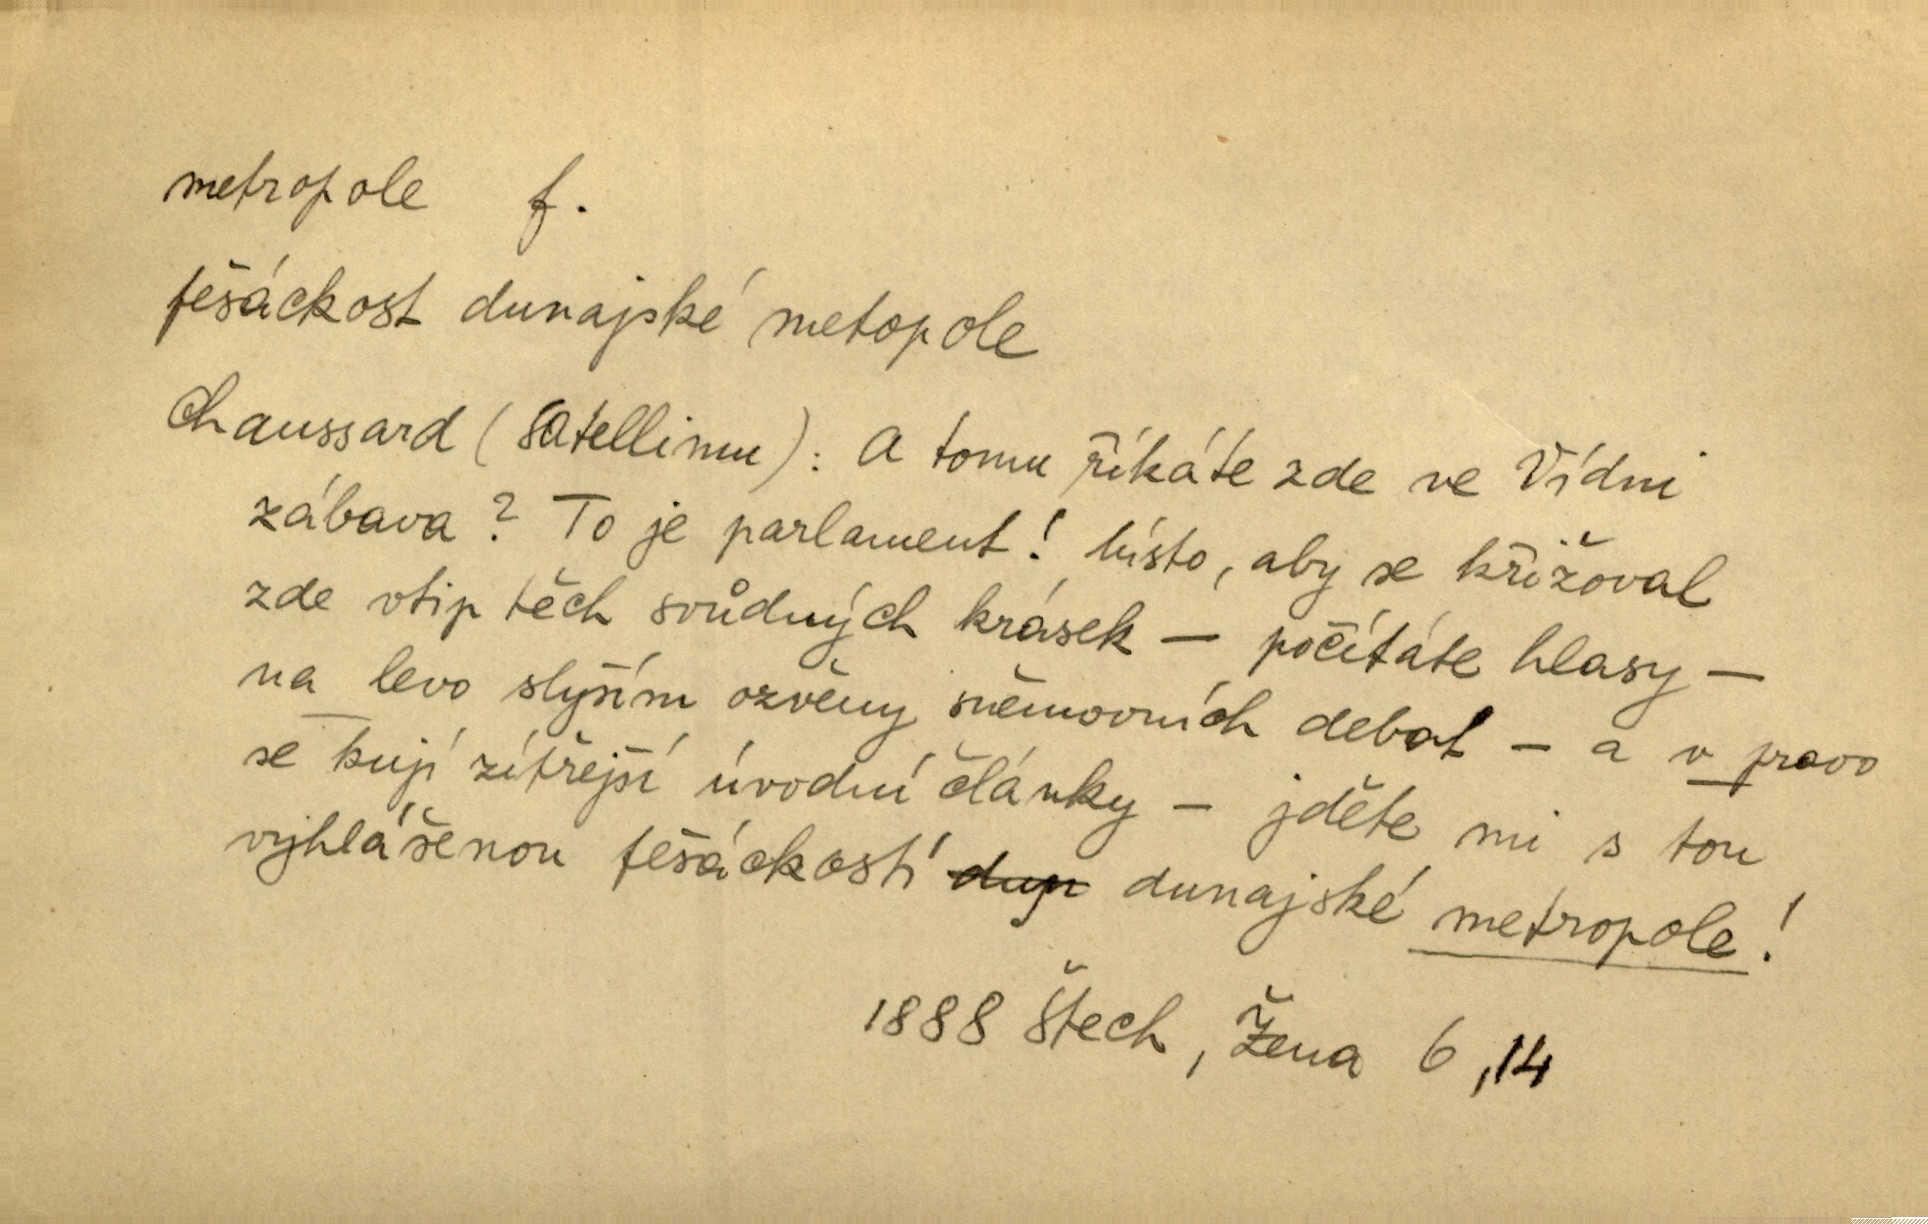 metropole f.
fešáckost dunajské metopole
Chaussard (Satellimu): A tomu říkáte zde ve Vídni
zábava? To je parlament! Místo, aby se křižoval
zde vtip těch svůdných krásek – počítáte hlasy –
na levo slyším ozvěny sněmovních debat – a v pravo
se kují zítřejší úvodní články – jděte mi s tou
vyhlášenou fešáckostí dun dunajské metropole!
1888 Štech, Žena 6,14